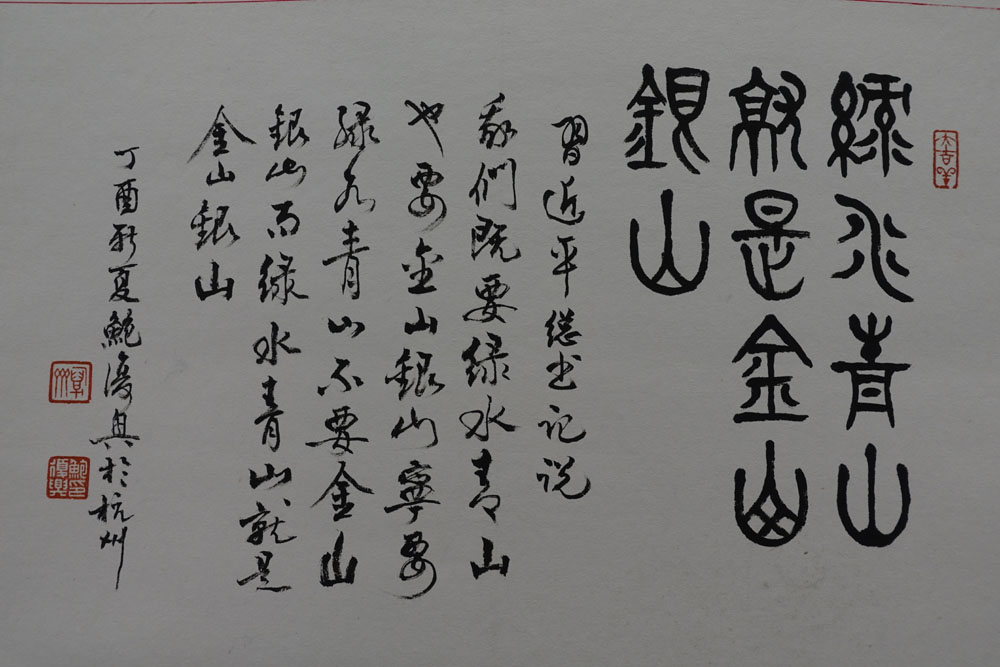 綠水青山
就是金山
銀山
習近平總书记说
我們既要绿水青山
也要金山銀山寧要
绿水青山不要金山
銀山而绿水青山就是
金山銀山
丁酉新夏鮑復興於杭州
鮑復興印